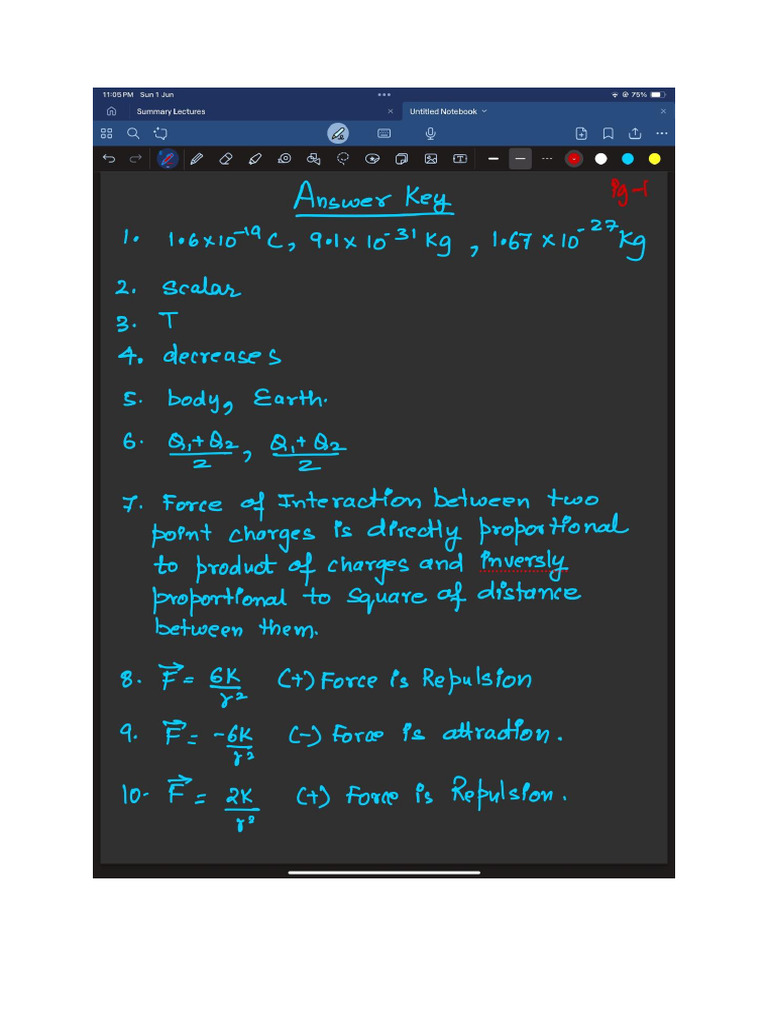 11:05 PM Sun 1 Jun
75%
Summary Lectures
Untitled Notebook
Answer Key
Pg-1
1. 1.6×10⁻¹⁹ C, 9.1× 10⁻³¹ Kg, 1.67 ×10⁻²⁷ Kg
2. Scalar
3. T
4. decreases
5. body, Earth.
6. Q₁+Q₂/2, Q₁+Q₂/2
7. Force of Interaction between two
point charges is directly proportional
to product of charges and inversly
proportional to square of distance
between them.
8. F⃗ = 6K/r² (+) Force is Repulsion
9. F⃗ = -6K/r² (-) Force is attraction.
10- F⃗ = 2K/r² (+) Force is Repulsion.